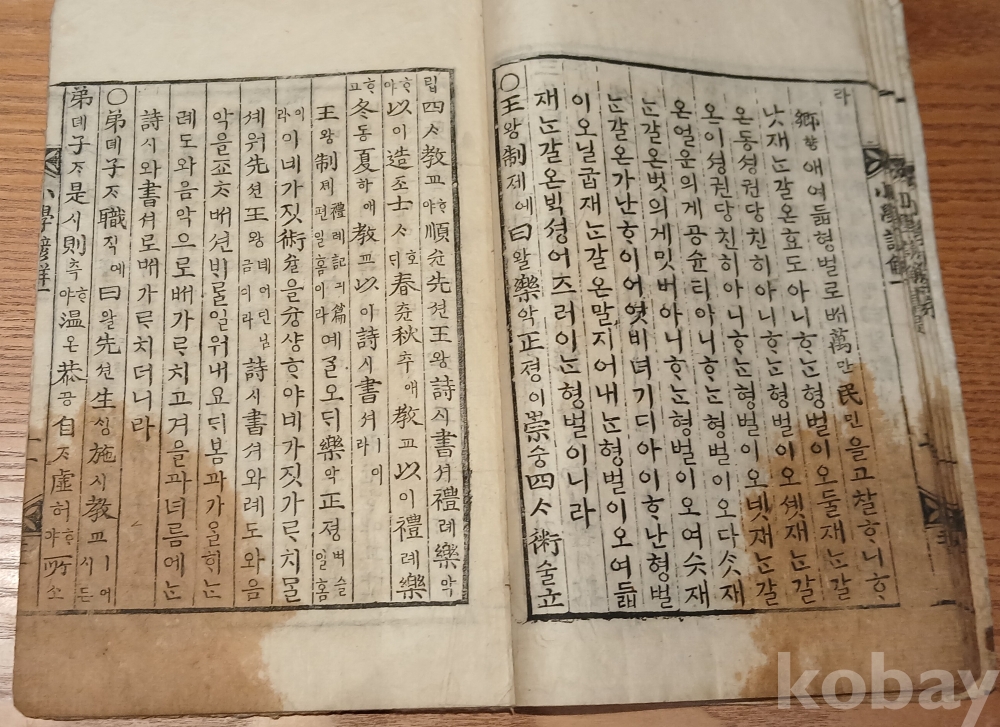 라
鄕향애여듧형벌로ᄡᅥ萬만民민을고찰ᄒᆞ니ᄒᆞ
낫재ᄂᆞᆫ갈온효도아니ᄒᆞᄂᆞᆫ형벌이오둘재ᄂᆞᆫ갈
온동셩권당친히아니ᄒᆞᄂᆞᆫ형벌이오셋재ᄂᆞᆫ갈
온이셩권당친히아니ᄒᆞᄂᆞᆫ형벌이오넷재ᄂᆞᆫ갈
온얼운의게공슌티아니ᄒᆞᄂᆞᆫ형벌이오다ᄉᆞᆺ재
ᄂᆞᆫ갈온벗의게밋버아니ᄒᆞᄂᆞᆫ형벌이오여ᄉᆞᆺ재
ᄂᆞᆫ갈온가난ᄒᆞ이어엿비녀기디아이ᄒᆞ난형벌
이오닐굽재ᄂᆞᆫ갈온말지어내ᄂᆞᆫ형벌이오여듧
재ᄂᆞᆫ갈온ᄇᆡᆨ셩어즈러이ᄂᆞᆫ형벌이니라
○王왕制제예曰왈樂악正졍이崇슝四ᄉᆞ術슐立
립四ᄉᆞ教교ᄒᆞ야順슌先션王왕詩시書셔禮례樂악
ᄒᆞ야以이造조士ᄉᆞ호ᄃᆡ春츈秋츄애教교以이禮례樂
ᄒᆞ고冬동夏하애教교以이詩시書셔ㅣ이라
王왕制제禮례記긔篇편일홈이라예ᄀᆞᆯ오ᄃᆡ樂악正졍벼슬일홈
이라이네가짓術슐을슝샹ᄒᆞ야네가짓가ᄅᆞ치믈
셰워先션王왕녜어딘님금이라詩시書셔와례도와음
악을조차ᄡᅥ션ᄇᆡᄅᆞᆯ일워내요ᄃᆡ봄과가을희ᄂᆞᆫ
례도와음악으로ᄡᅥ가ᄅᆞ치고겨을과녀름에ᄂᆞᆫ
詩시와書셔로ᄡᅥ가ᄅᆞ치더니라
○弟뎨子ᄌᆞ職직에曰왈先션生ᄉᆡᆼ施시教교ㅣ어시든
弟뎨子ᄌᆞ是시則측ᄒᆞ야温온恭공自ᄌᆞ虛허ᄒᆞ야所소
小學諺解一
kobay